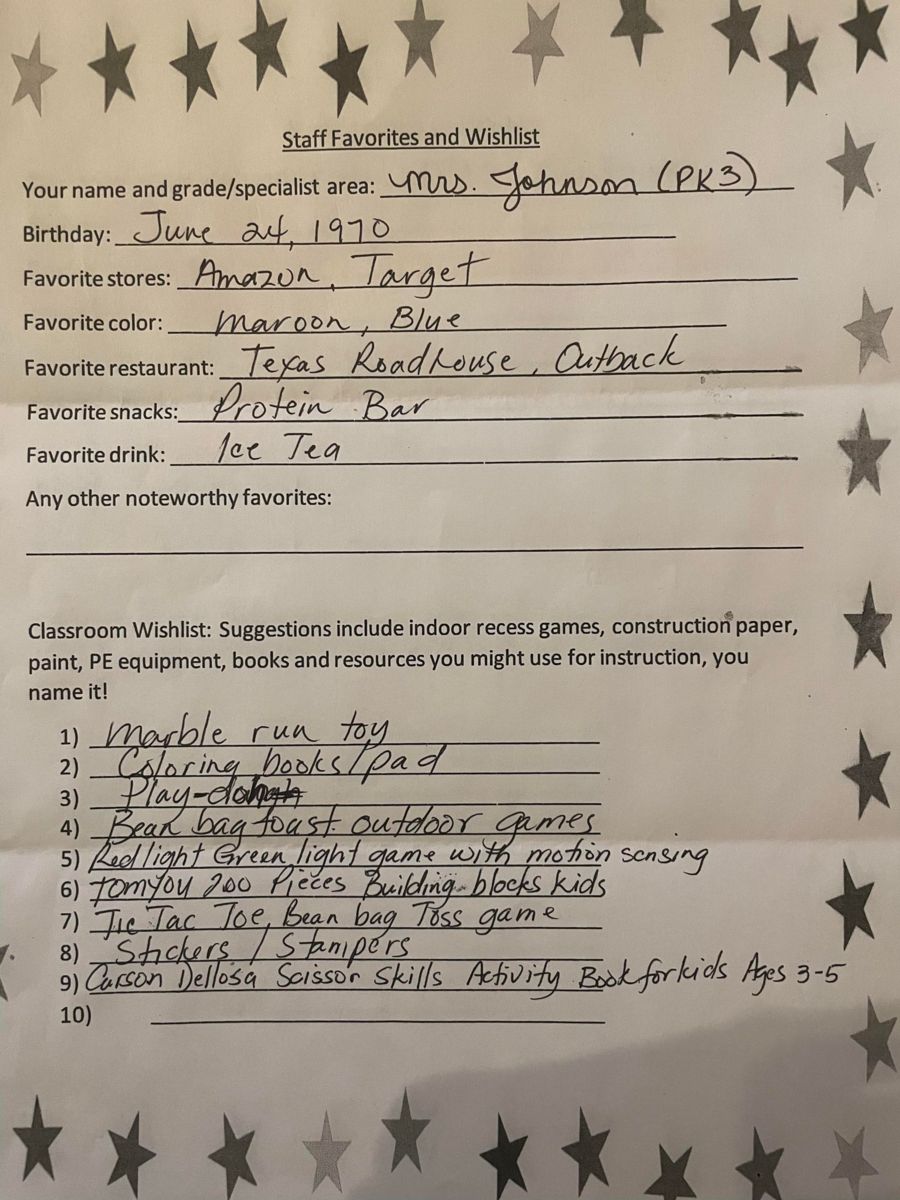 Staff Favorites and Wishlist
Your name and grade/specialist area: Mrs. Johnson (PK3)
Birthday: June 24, 1970
Favorite stores: Amazon, Target
Favorite color: Maroon, Blue
Favorite restaurant: Texas Roadhouse, Outback
Favorite snacks: Protein Bar
Favorite drink: Ice Tea
Any other noteworthy favorites:
Classroom Wishlist: Suggestions include indoor recess games, construction paper,
paint, PE equipment, books and resources you might use for instruction, you
name it!
1) Marble run toy
2) Coloring books/pad
3) Play-doh
4) Bean bag toast outdoor games
5) Red light Green light game with motion sensing
6) TOMYOU 200 Pieces Building blocks kids
7) Tic Tac Toe, Bean bag Toss game
8) Stickers / Stampers
9) Carson Dellosa Scissor Skills Activity Book for kids Ages 3-5
10)